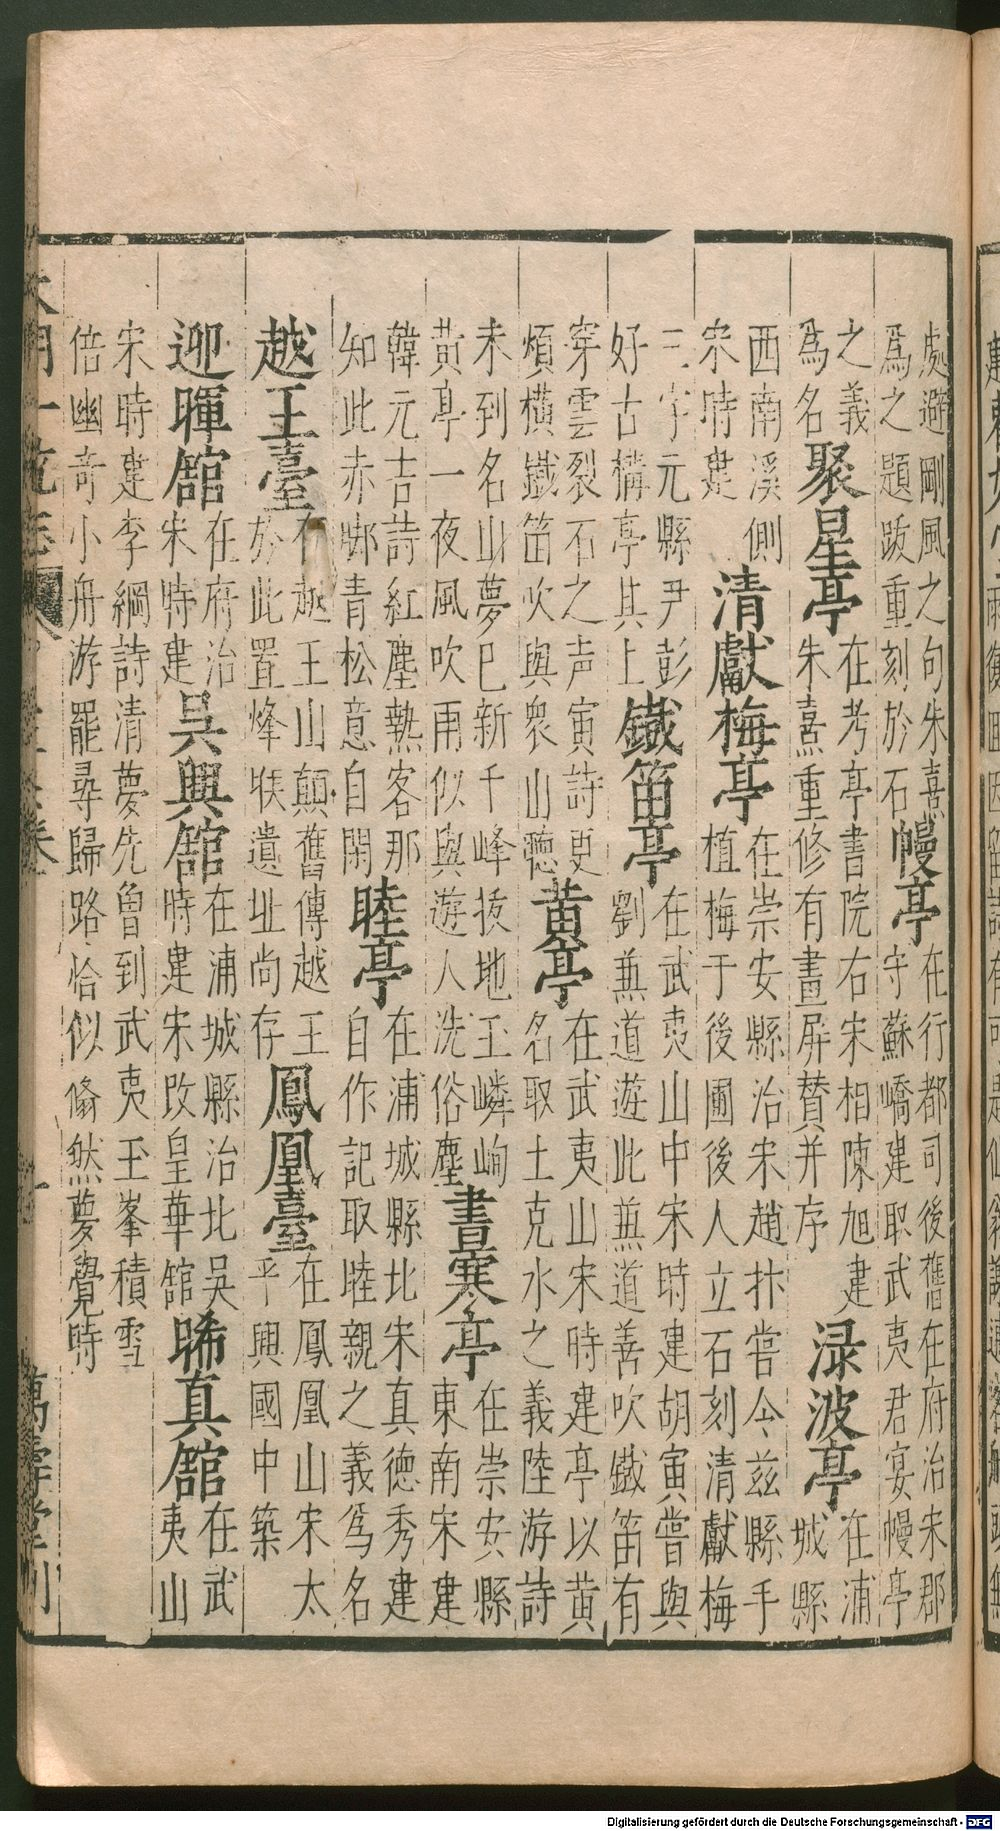 處避剛風之句朱熹
爲之題跋重刻於石
幔亭
在行都司後舊在府治宋郡
守蘇嶠建取武夷君宴幔亭
之義
爲名
聚星亭
在考亭書院右宋相陳旭建
朱熹重修有畫屏贊并序
渌波亭
在浦
城縣
西南溪側
宋時建
清獻梅亭
在崇安縣治宋趙抃嘗令兹縣手
植梅于後圃後人立石刻清獻梅
三字元縣尹彭
好古構亭其上
鐵笛亭
在武夷山中宋時建胡寅嘗與
劉兼道遊此兼道善吹鐵笛有
穿雲裂石之声寅詩更
煩橫鐵笛吹與衆山聽
黄亭
在武夷山宋時建亭以黄
名取土克水之義陸游詩
未到名山夢已新千峰拔地玉嶙峋
黄亭一夜風吹雨似與遊人洗俗塵
晝寒亭
在崇安縣
東南宋建
韓元吉詩紅塵熱客那
知此赤腳青松意自閑
睦亭
在浦城縣北宋真德秀建
自作記取睦親之義爲名
越王臺
在越王山顛舊傳越王
於此置烽堠遺址尚存
鳳凰臺
在鳳凰山宋太
平興國中築
迎暉館
在府治
宋時建
吳興館
在浦城縣治北吳
時建宋改皇華館
晞真館
在武
夷山
宋時建李綱詩清夢先曾到武夷玉峯積雪
倍幽奇小舟游罷尋歸路恰似翛然夢覺時
大明一統志
萬壽堂刊
Digitalisierung gefördert durch die Deutsche Forschungsgemeinschaft - DFG